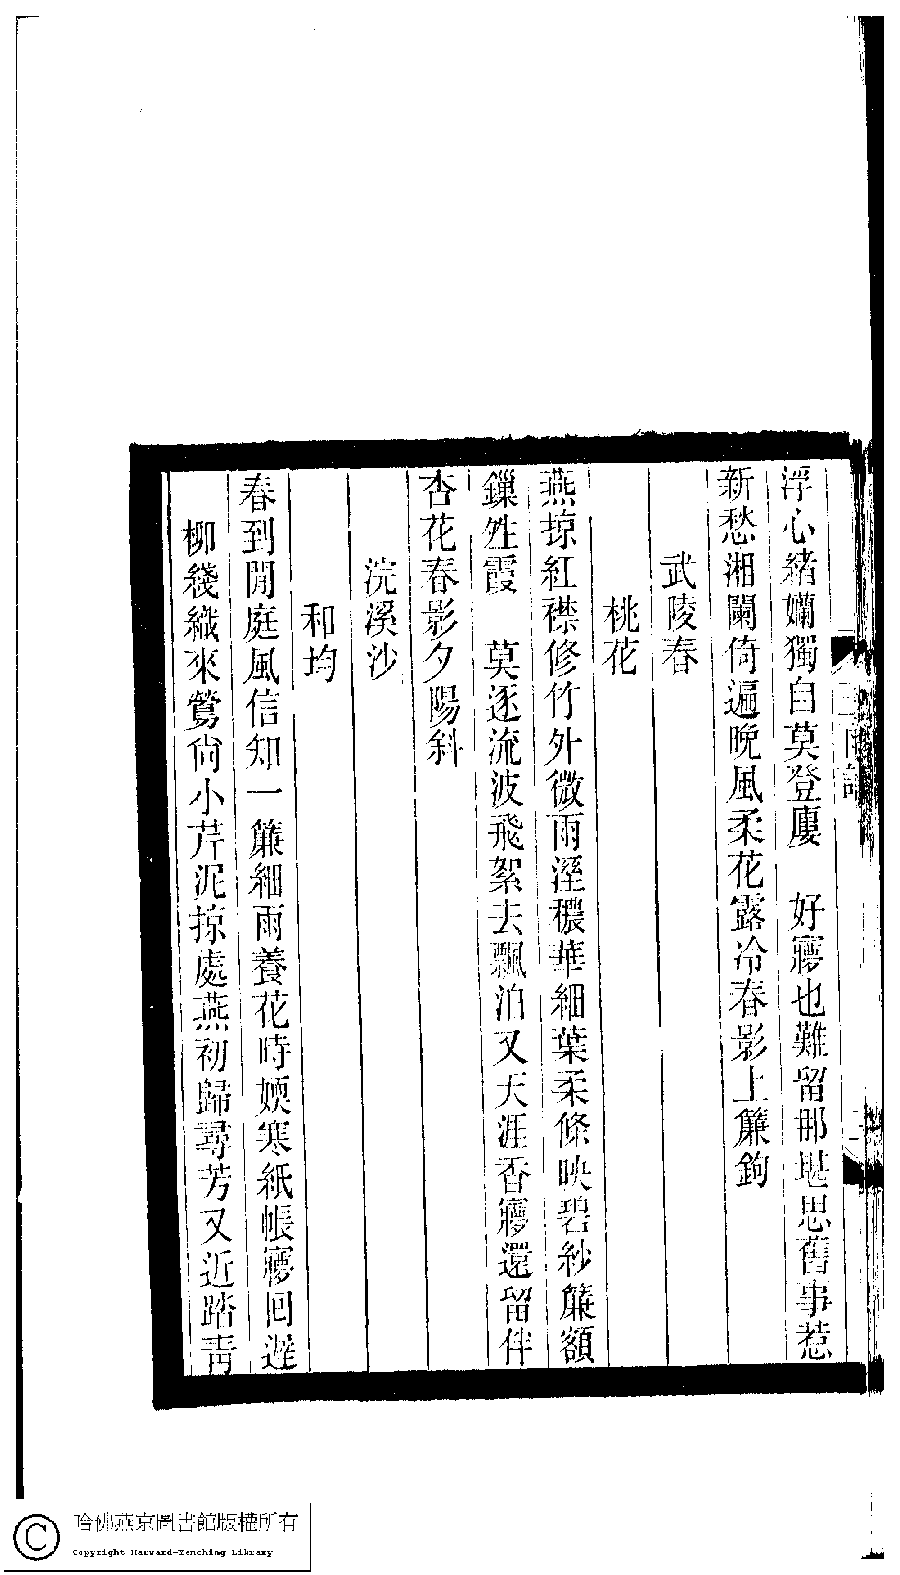 浮心緒嬾獨自莫登廔　好㝱也難留那堪思舊事惹
新愁湘闌倚遍晚風柔花露冷春影上簾鉤
武陵春
桃花
燕掠紅襟修竹外微雨溼穠華細葉柔條映碧紗簾額
鏁甡霞　莫逐流波飛絮去飄泊又天涯香㝱還留伴
杏花春影夕陽斜
浣溪沙
和均
春到閒庭風信知一簾細雨養花時㜛寒紙帳㝱回遲
柳綫織來鶯尙小芹泥掠處燕初歸尋芳又近踏靑
哈佛燕京圖書館版權所有
Copyright Harvard-Yenching Library